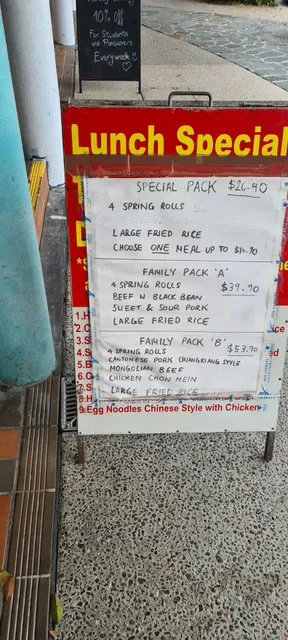 10% Off
For Students
and Pensioners
Everyweek
Lunch Special
SPECIAL PACK $26.90
4 SPRING ROLLS
LARGE FRIED RICE
CHOOSE ONE MEAL UP TO $14.90
FAMILY PACK 'A'
4 SPRING ROLLS $39.90
BEEF W BLACK BEAN
SWEET & SOUR PORK
LARGE FRIED RICE
FAMILY PACK 'B'
4 SPRING ROLLS $53.90
CANTONESE PORK CHUNGKIANG STYLE
MONGOLIAN BEEF
CHICKEN CHOW MEIN
LARGE FRIED RICE
9.Egg Noodles Chinese Style with Chicken